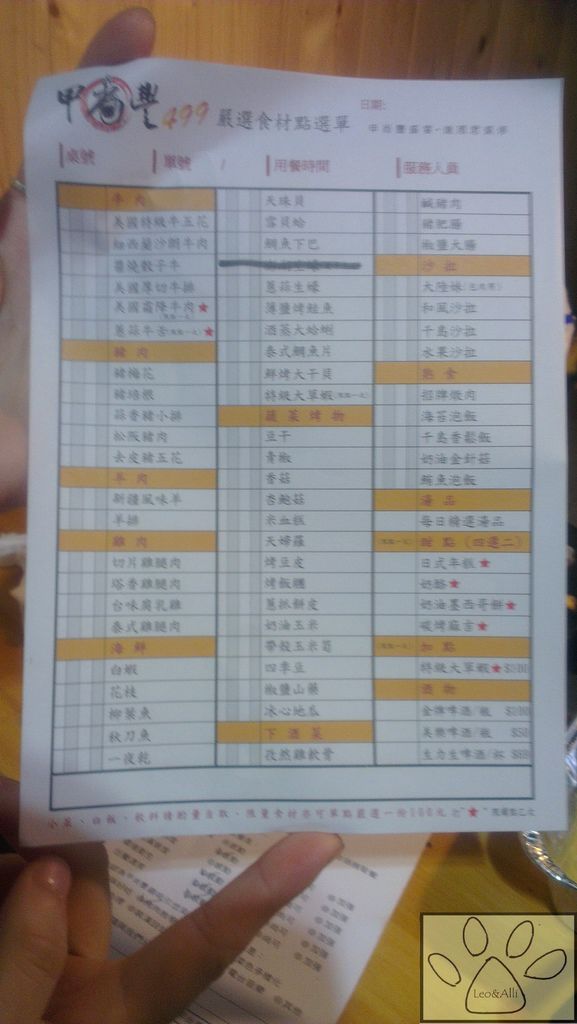 甲尚豐 499 嚴選食材點選單
日期:
桌號
單號 /
用餐時間
服務人員
牛肉
美國特級牛五花
紐西蘭沙朗牛肉
醬燒骰子牛
美國厚切牛排
美國霜降牛肉★
蔥蒜牛舌(限點一次)★
豬肉
豬梅花
豬培根
蒜香豬小排
松阪豬肉
去皮豬五花
羊肉
新疆風味羊
羊排
雞肉
切片雞腿肉
塔香雞腿肉
台味腐乳雞
泰式雞腿肉
海鮮
白蝦
花枝
柳葉魚
秋刀魚
一夜乾
天珠貝
雪貝蛤
鯛魚下巴
蔥蒜生蠔
薄鹽烤鮭魚
酒蒸大蛤蜊
泰式鯛魚片
鮮烤大干貝
特級大草蝦(限點一次)
蔬菜烤物
豆干
青椒
香菇
杏鮑菇
米血糕
天婦羅
烤豆皮
烤飯糰
蔥抓餅皮
奶油玉米
帶殼玉米筍
四季豆
椒鹽山藥
冰心地瓜
下酒菜
孜然雞軟骨
鹹豬肉
豬肥腸
椒鹽大腸
沙拉
大陸妹(包肉用)
和風沙拉
千島沙拉
水果沙拉
熟食
招牌燉肉
海苔泡飯
千島香鬆飯
奶油金針菇
鮪魚泡飯
湯品
每日精選湯品
(限點一次) 甜點 (四選二)
日式年糕★
奶酪★
奶油墨西哥餅★
碳烤麻吉★
(限點一次) 加點
特級大草蝦★$100
酒物
金牌啤酒/瓶
美樂啤酒/瓶
生力生啤酒/杯
小菜、白飯、飲料請酌量自取、限量食材亦可單點嚴選一份100元
Leo&Alli